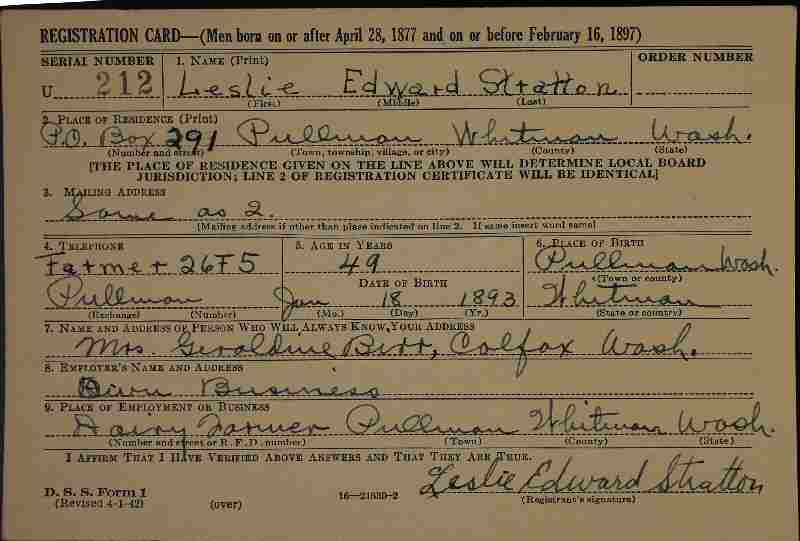 REGISTRATION CARD—(Men born on or after April 28, 1877 and on or before February 16, 1897)
SERIAL NUMBER 1. NAME (Print) ORDER NUMBER
U 212 Leslie Edward Stratton
(First) (Middle) (Last)
2. PLACE OF RESIDENCE (Print)
P.O. Box 291 Pullman Whitman Wash.
(Number and street) (Town, township, village, or city) (County) (State)
[THE PLACE OF RESIDENCE GIVEN ON THE LINE ABOVE WILL DETERMINE LOCAL BOARD
JURISDICTION; LINE 2 OF REGISTRATION CERTIFICATE WILL BE IDENTICAL]
3. MAILING ADDRESS
Same as 2.
[Mailing address if other than place indicated on line 2. If same insert word same]
4. TELEPHONE 5. AGE IN YEARS 6. PLACE OF BIRTH
Farmer 26F5 49 Pullman Wash.
DATE OF BIRTH (Town or county)
Pullman Jan 18 1893 Whitman
(Exchange) (Number) (Mo.) (Day) (Yr.) (State or country)
7. NAME AND ADDRESS OF PERSON WHO WILL ALWAYS KNOW YOUR ADDRESS
Mrs. Geraldine Burr, Colfax Wash.
8. EMPLOYER'S NAME AND ADDRESS
Own Business
9. PLACE OF EMPLOYMENT OR BUSINESS
Dairy Farmer Pullman Whitman Wash.
(Number and street or R. F. D. number) (Town) (County) (State)
I AFFIRM THAT I HAVE VERIFIED ABOVE ANSWERS AND THAT THEY ARE TRUE.
Leslie Edward Stratton
D. S. S. Form 1
(Revised 4-1-42) (over) 16—21630-2 (Registrant's signature)